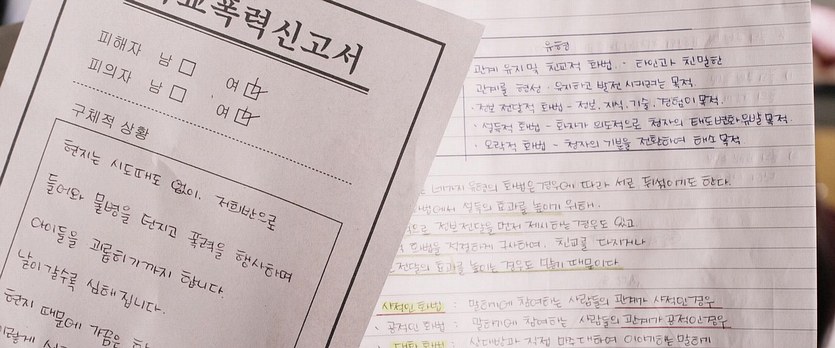 폭력신고서
피해자 남 □ 여 ☑
피의자 남 □ 여 ☑
구체적 상황
현지는 시도때도 없이. 저희반으로
들어와 물병을 던지고 폭력을 행사하며
아이들을 괴롭히기까지 합니다.
날이갈수록 심해집니다.
현지 때문에 가끔은
유형
관계 유지 및 친교적 화법 · 타인과 친밀한
관계를 형성·유지하고 발전시키려는 목적.
· 정보 전달적 화법 - 정보, 지식, 기술, 경험이 목적.
· 설득적 화법 - 화자가 의도적으로 청자의 태도변화 유발 목적.
· 오락적 화법 - 청자의 기분을 전환하여 해소 목적
유형의 화법은 경우에 따라 서로 뒤섞이기도 한다.
설득의 효과를 높이기 위해.
정보전달을 먼저 제시하는 경우도 있고
화법을 적절하게 구사하여, 친교를 다지거나
전달의 효과를 높이는 경우도 많기 때문이다
사적인 화법 : 말하기에 참여하는 사람들의 관계가 사적인 경우
· 공적인 화법 : 말하기에 참여하는 사람들의 관계가 공적인 경우
대화 화법 : 상대방과 직접 마주 대하여 이야기하는 말하기